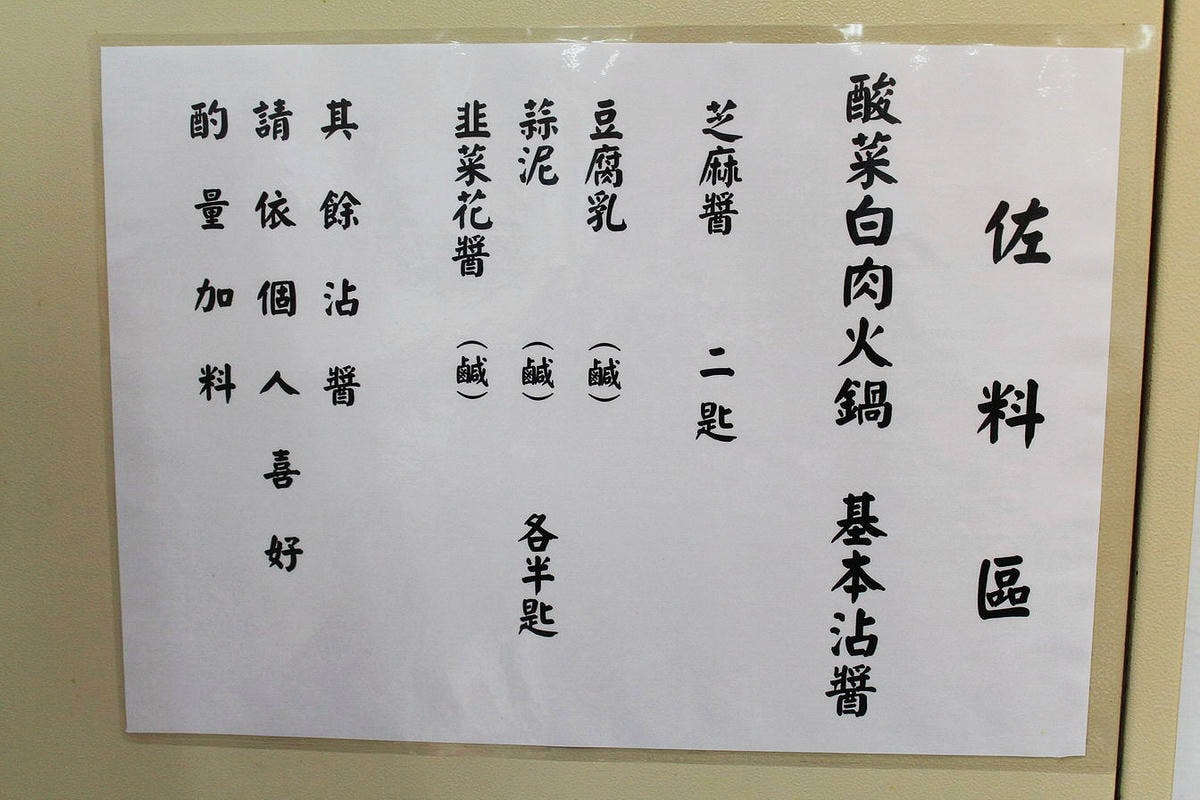 佐料區
酸菜白肉火鍋 基本沾醬
芝麻醬 二匙
豆腐乳 (鹹)
蒜泥 (鹹) 各半匙
韭菜花醬 (鹹)
其餘沾醬
請依個人喜好
酌量加料